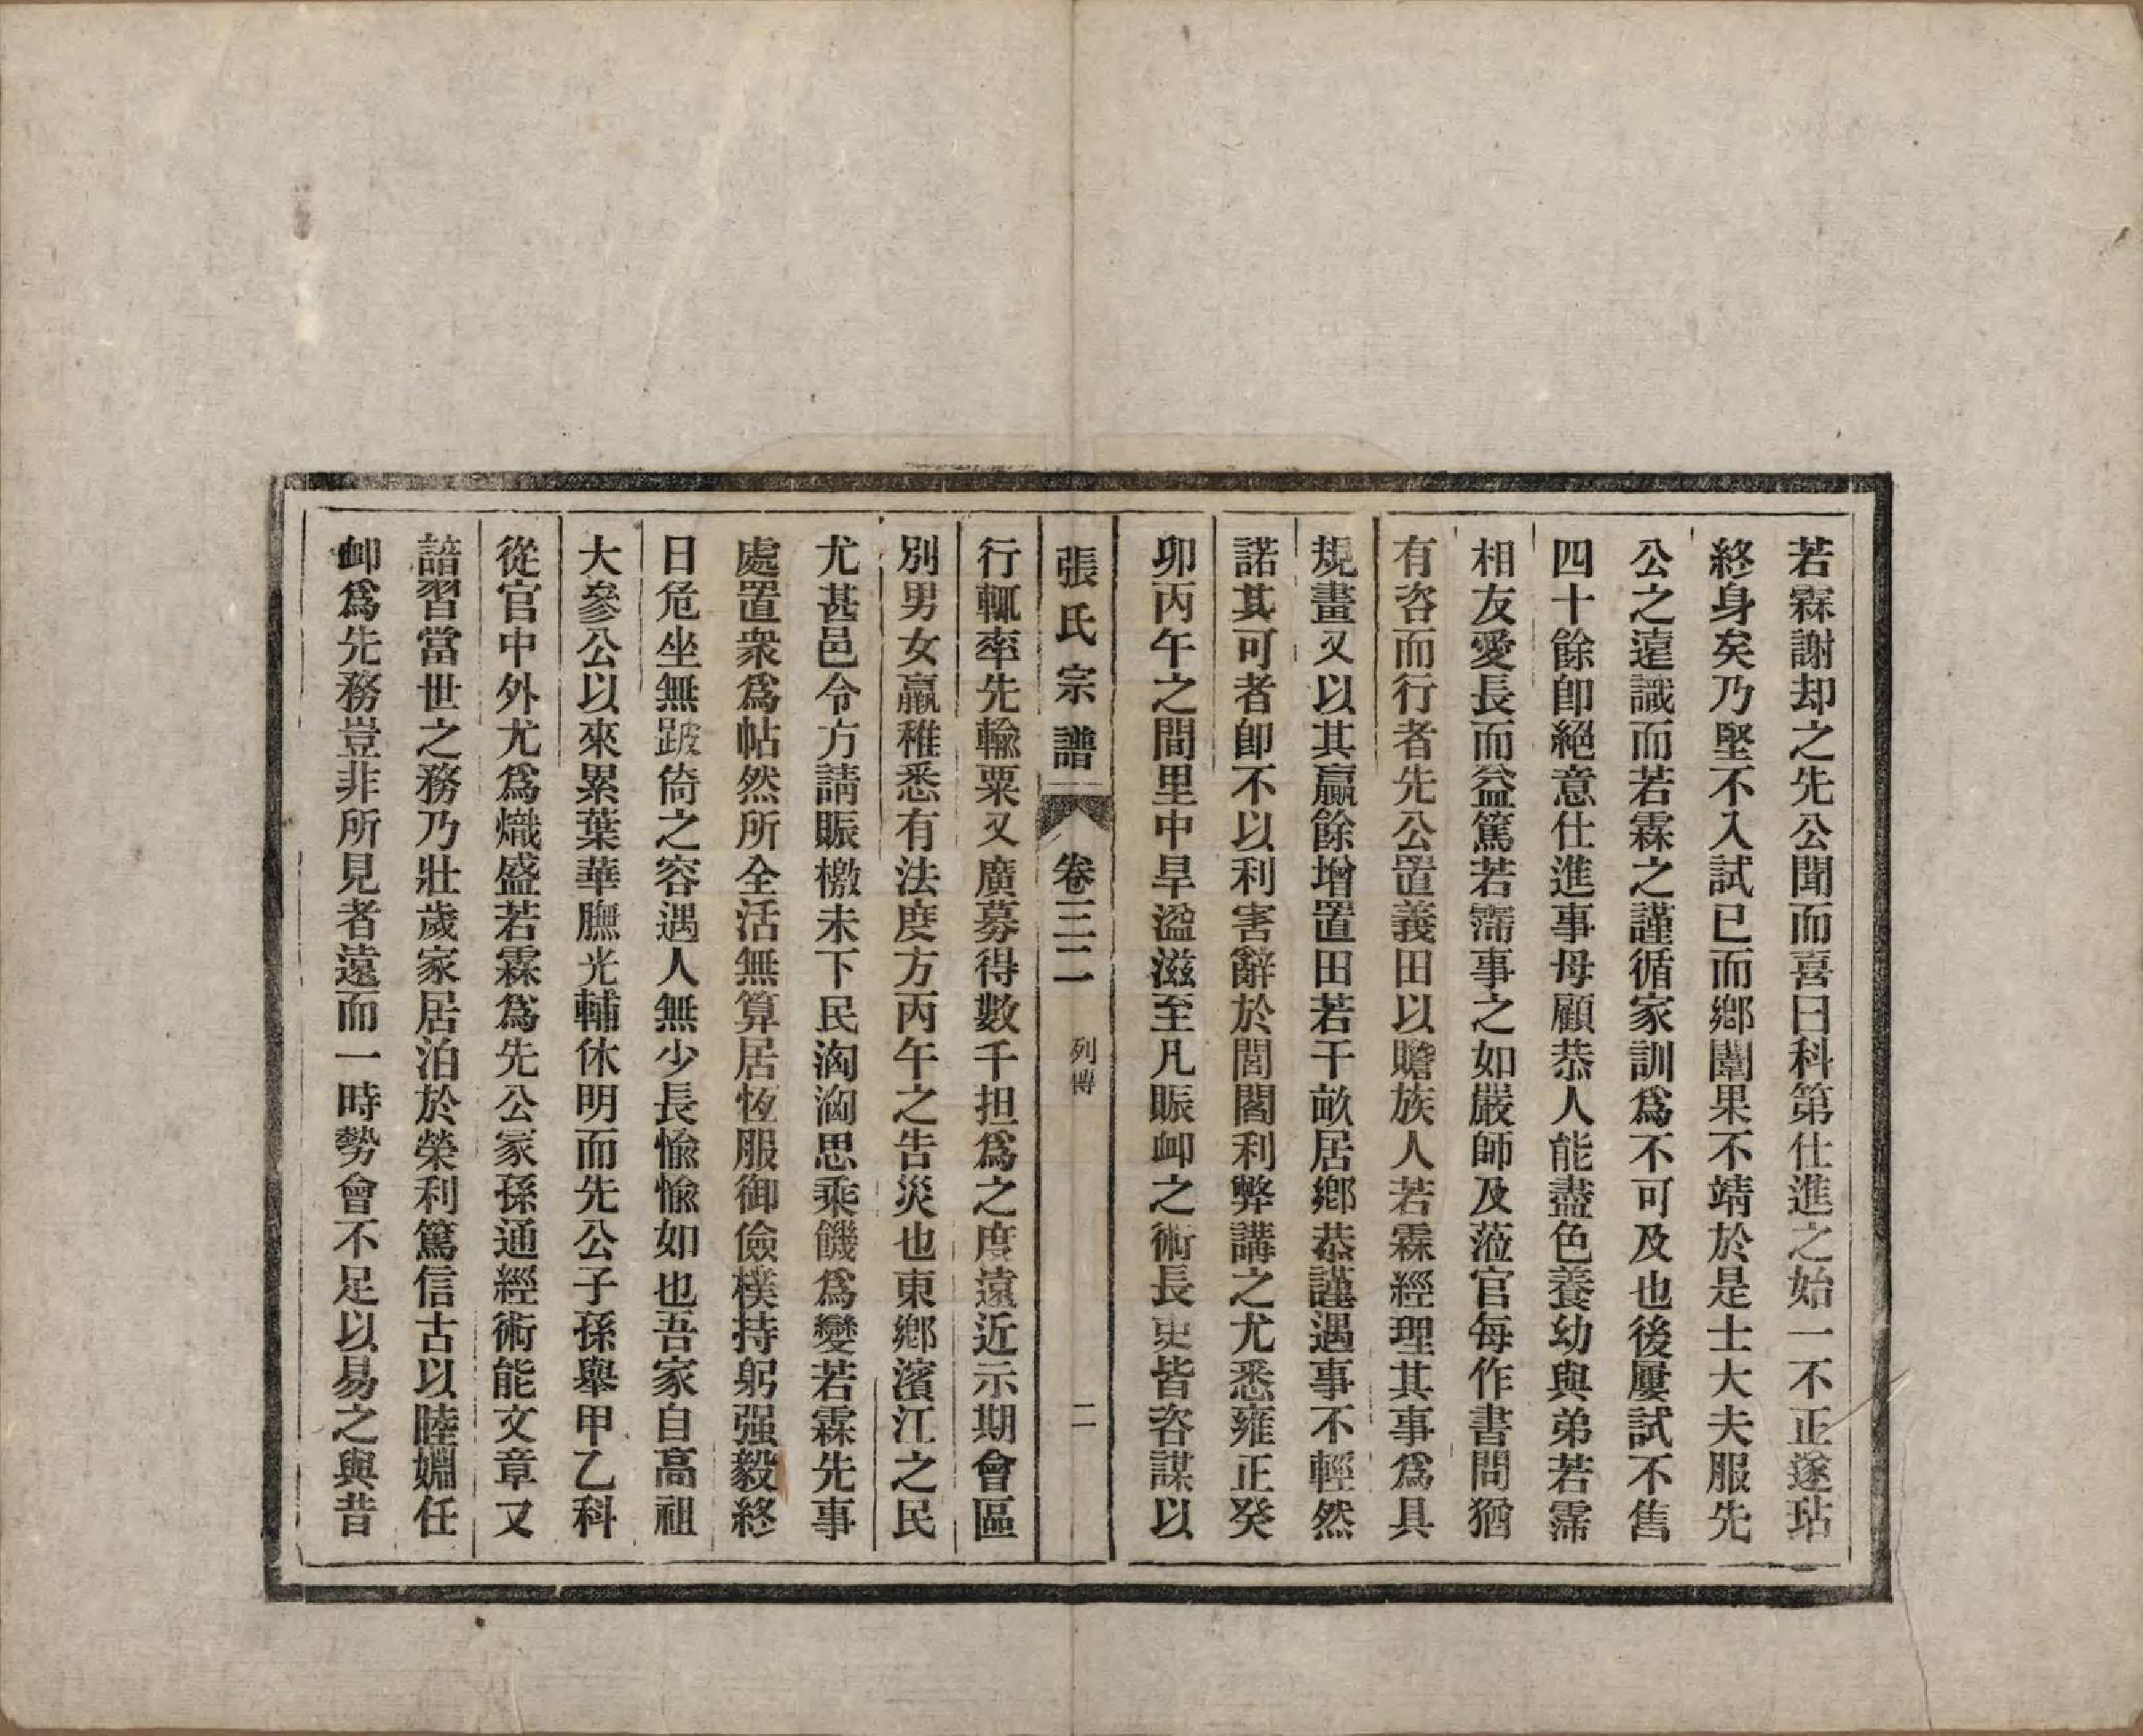 若霖謝却之先公聞而喜曰科第仕進之始一不正遂玷
終身矣乃堅不入試已而鄉闈果不靖於是士大夫服先
公之遠識而若霖之謹循家訓爲不可及也後屢試不售
四十餘卽絕意仕進事母顧恭人能盡色養幼與弟若霈
相友愛長而益篤若霈事之如嚴師及蒞官每作書問猶
有咨而行者先公置義田以贍族人若霖經理其事爲具
規畫又以其贏餘增置田若干畝居鄉恭謹遇事不輕然
諾其可者卽不以利害辭於閭閻利弊講之尤悉雍正癸
卯丙午之間里中旱溢滋至凡賑卹之術長吏皆咨謀以
張氏宗譜 卷三二 列傳 二
行輒率先輸粟又廣募得數千担爲之度遠近示期會區
別男女羸稚悉有法度方丙午之告災也東鄉濱江之民
尤甚邑令方請賑檄未下民洶洶思乘饑爲變若霖先事
處置衆爲帖然所全活無算居恆服御儉樸持躬强毅終
日危坐無跛倚之容遇人無少長愉愉如也吾家自高祖
大參公以來累葉華膴光輔休明而先公子孫舉甲乙科
從官中外尤爲熾盛若霖爲先公冢孫通經術能文章又
諳習當世之務乃壯歲家居泊於榮利篤信古以睦婣任
卹爲先務豈非所見者遠而一時勢會不足以易之與昔